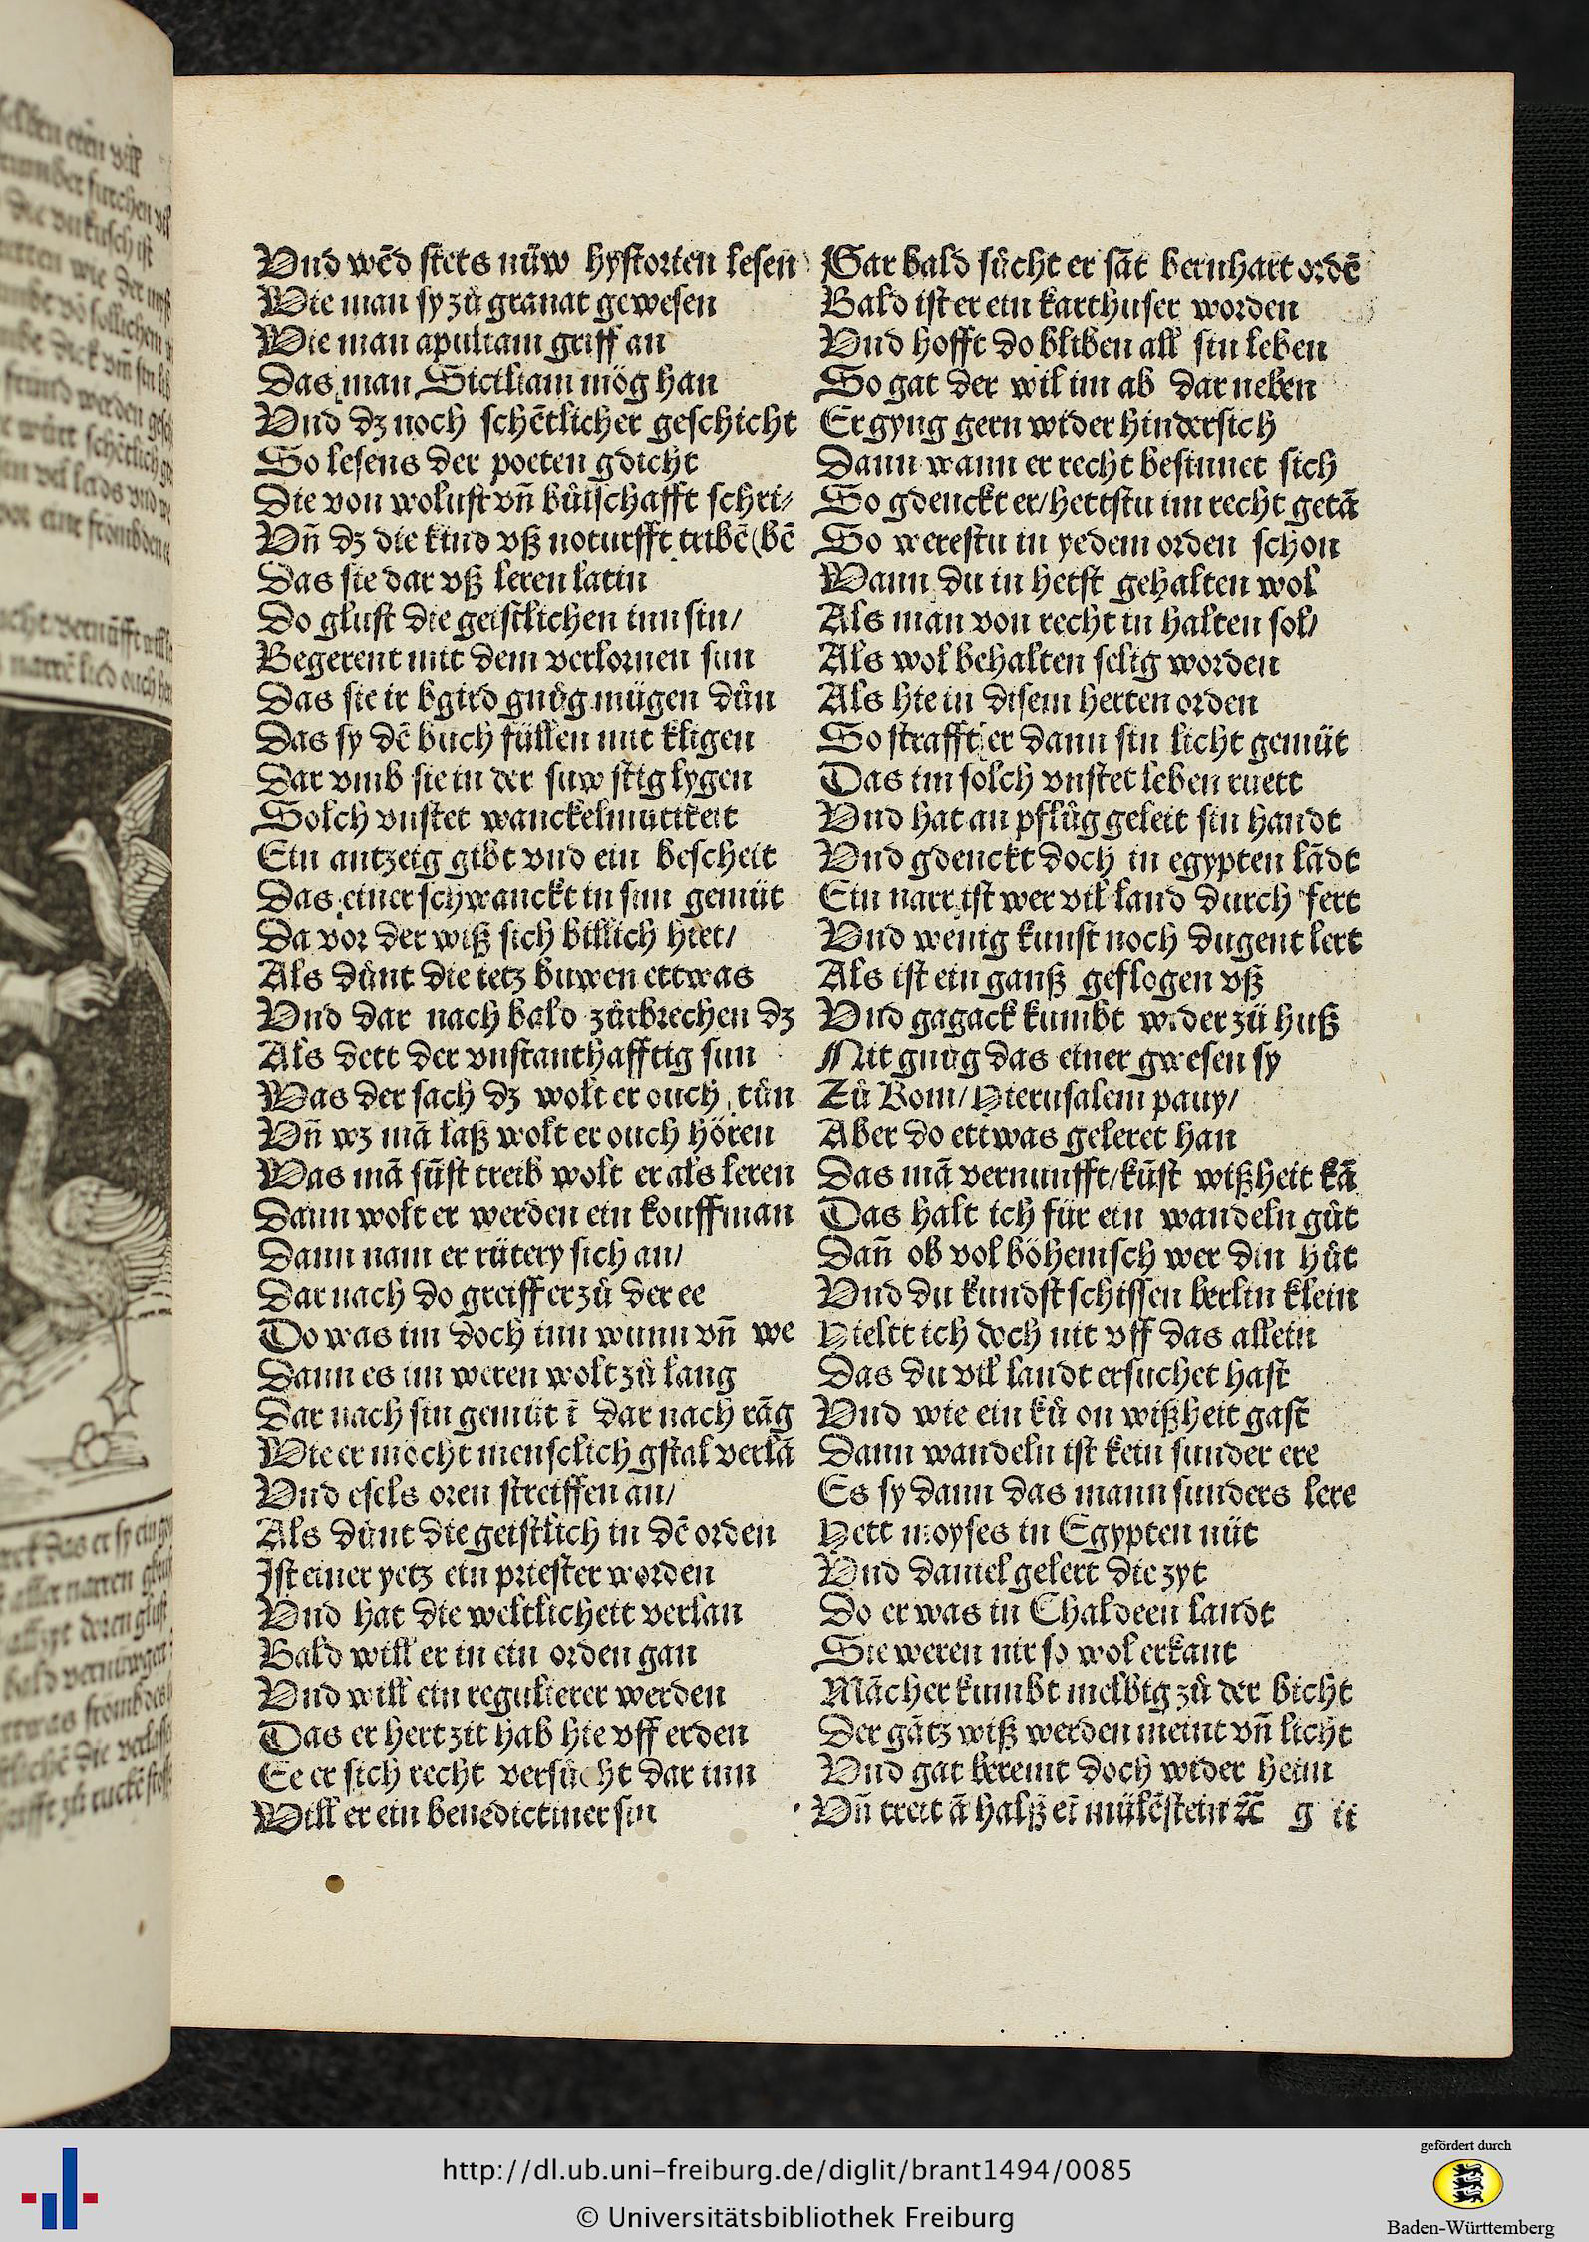 Vnd wēd stets nüw hystorien lesen
Wie man sy zů granat gewesen
Wie man apuliam griff an
Das man Siciliam mög han
Vnd dz noch schētlicher geschicht
So lesens der poeten gdicht
Die von wolust vn̄ bůlschafft schri⸗
Vn̄ dz die kind vß noturfft tribē (bē
Das sie dar vß leren latin
Do glust die geistlichen inn sin/
Begerent mit dem verlornen sun
Das sie ir bgird gnůg mügen důn
Das sy dē buch füllen mit kligen
Dar vmb sie in der suw stig lygen
Solch vnstet wanckelmutikeit
Ein antzeig gibt vnd ein bescheit
Das einer schwanckt in sim gemüt
Da vor der wiß sich billich hiet/
Als důnt die ietz buwen ettwas
Vnd dar nach bald zůrbrechen dz
Als dett der vnstanthafftig sun
Was der sach dz wolt er ouch tůn
Vn̄ wz mā laß wolt er ouch hören
Was mā sūst treib wolt er als leren
Dann wolt er werden ein kouffman
Dann nam er rütery sich an/
Dar nach do greiff er zů der ee
Do was im doch inn wunn vn̄ we
Dann es im weren wolt zů lang
Dar nach sin gemüt ī dar nach rāg
Wie er mocht mensclich gstal verlā
Vnd esels oren streiffen an/
Als důnt die geistlich in dē orden
Ist einer yetz ein priester worden
Vnd hat die weltlicheit verlan
Bald will er in ein orden gan
Vnd will ein regulierer werden
Das er hert zit hab hie vff erden
Ee er sich recht versůcht dar inn
Will er ein benedictiner sin
Gar bald sůcht er sāt bernhart ordē
Bald ist er ein karthuser worden
Vnd hofft do bliben all sin leben
So gat der wil im ab dar neben
Er gyng gern wider hindersich
Dann wann er recht besinnet sich
So gdenckt er/hettstu im recht getā
So werestu in yedem orden schon
Wann du in hetst gehalten wol
Als man von recht in halten sol/
Als wol behalten selig worden
Als hie in disem herten orden
So strafft er dann sin licht gemüt
Das im solch vnstet leben ruett
Vnd hat an pflůg geleit sin handt
Vnd gdenckt doch in egypten lādt
Ein narr ist wer vil land durch fert
Vnd wenig kunst noch dugent lert
Als ist ein ganß geflogen vß
Vnd gagack kumbt wider zů huß
Nit gnůg das einer gwesen sy
Zů Rom/Hierusalem pauy/
Aber do ettwas geleret han
Das mā vernunfft/kūst wißheit kā
Das halt ich für ein wandeln gůt
Dan̄ ob vol böhemsch wer din hůt
Vnd du kundst schissen berlin klein
Hieltt ich doch nit vff das allein
Das du vil landt ersuchet hast
Vnd wie ein ků on wißheit gast
Dann wandeln ist kein sunder ere
Es sy dann das mann sunders lere
Hett moyses in Egypten nüt
Vnd daniel gelert die zyt
Do er was in Chaldeen landt
Sie weren nit so wol erkant
Mācher kumbt melbig zů der bicht
Der gātz wiß werden meint vn̄ licht
Vnd gat beremt doch wider heim
Vn̄ treit ā halß eī mülēstein ꝛc̄ g ii
http://dl.ub.uni-freiburg.de/diglit/brant1494/0085
© Universitätsbibliothek Freiburg
gefördert durch
Baden-Württemberg